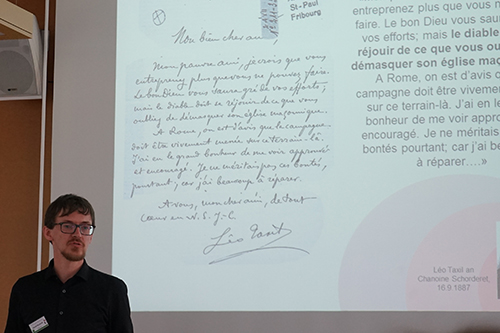 St-Paul
Fribourg
Mon bien cher ami,
Mon pauvre ami, je crois que vous
entreprenez plus que vous ne pouvez faire.
Le bon Dieu vous saura gré de vos efforts;
mais le diable doit se réjouir de ce que vous
oubliez de démasquer son église maçonnique.
A Rome, on est d'avis que la campagne
doit être vivement menée sur ce terrain-là.
J'ai eu le grand bonheur de me voir approuvé
et encouragé. Je ne méritais pas ces bontés,
pourtant; car j'ai beaucoup à réparer.
A vous, mon cher ami, de tout
cœur en N. S. J.-C.
Léo Taxil
entreprenez plus que vous n
faire. Le bon Dieu vous sau
vos efforts; mais le diable
réjouir de ce que vous ou
démasquer son église maç
A Rome, on est d'avis
campagne doit être vivemen
sur ce terrain-là. J'ai eu l
bonheur de me voir appro
encouragé. Je ne méritais
bontés pourtant; car j'ai be
à réparer....»
Léo Taxil an
Chanoine Schorderet,
16.9.1887